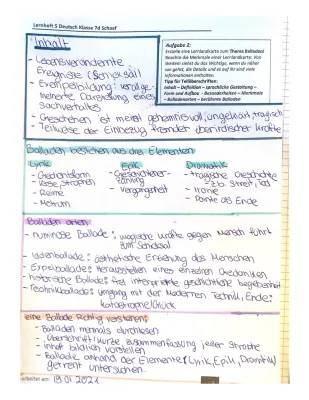 Lernheft 5 Deutsch Klasse 7d Schaaf
Inhalt
- Lebensverändernte
Ereignisse (Schicksal)
- Exempelbildung: verallge-
meinerte Darstellung eines
Sachverhaltes
- Geschehen ist meist geheimnisvoll, ungeklärt, tragisch
- Teilweise der Einbezug fremder überirdischer Kräfte
Aufgabe 2:
Erstelle eine Lernlandkarte zum Thema Balladen!
Beachte die Merkmale einer Lernlandkarte: Von
denken siehst du das Wichtigste, wenn du näher
ran gehst, die Details und es soll für dich viele
Informationen enthalten.
Tipp für Teilüberschriften:
Inhalt – Definition – sprachliche Gestaltung –
Form und Aufbau – Besonderheiten – Merkmale
– Balladenarten – berühmte Balladen
Balladen bestehen aus drei Elementen
Lyrik
- Gedichtform
- Verse, Strophen
- Reime
- Metrum
Epik
- Geschichtener-
zählung
- Vergangenheit
Dramatik
- tragische Geschichte
z.B. Streit, Tod
- Ironie
- Pointe als Ende
Balladen arten
- numinose Ballade: magische Kräfte gegen Mensch führt
zum Schicksal
- Ideenballade: ästhetische Erziehung des Menschen
- historische Ballade: frei interpretierte geschichtliche begebenheit
- Technikballade: umgang mit der Modernen Technik, Ende:
katastrophe/Glück
eine Ballade Richtig verstehen:
- Balladen mermals durchlesen
- Überschrift/kurze zusammenfassung jeder Strophe
- Inhalt bildlich vorstellen
- Ballade anhand der Elemente (Lyrik, Epik, Dramatik)
getrennt untersuchen.
19.01.2021